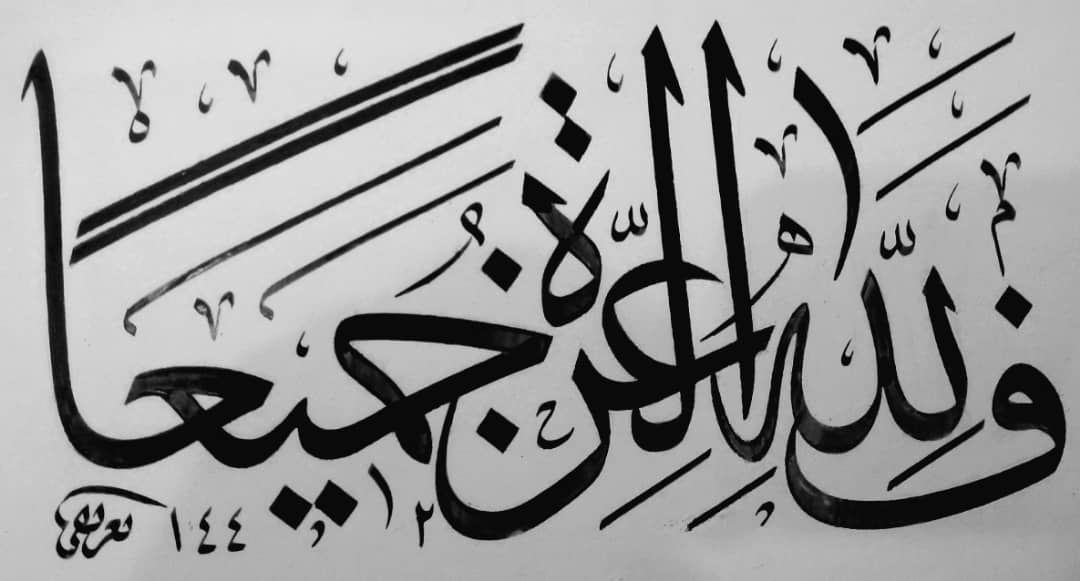 فَلِلّٰهِ الْعِزَّةُ جَمِيعًا
١٤٤